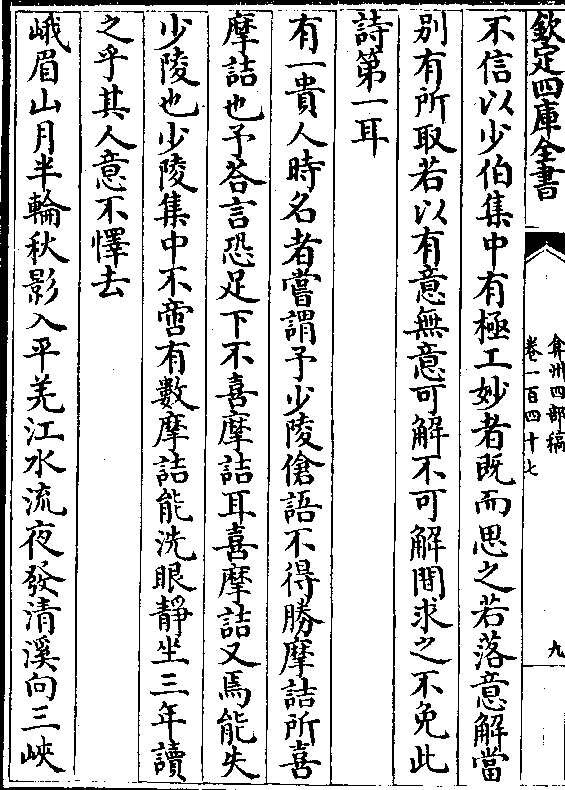 欽定四庫全書
弇州四部稿
卷一百四十七
九
不信以少伯集中有極工妙者既而思之若落意解當
别有所取若以有意無意可解不可解間求之不免此
詩第一耳
有一貴人時名者嘗謂予少陵傖語不得勝摩詰所喜
摩詰也予答言恐足下不喜摩詰耳喜摩詰又焉能失
少陵也少陵集中不啻有數摩詰能洗眼靜坐三年讀
之乎其人意不懌去
峨眉山月半輪秋影入平羌江水流夜發清溪向三峽